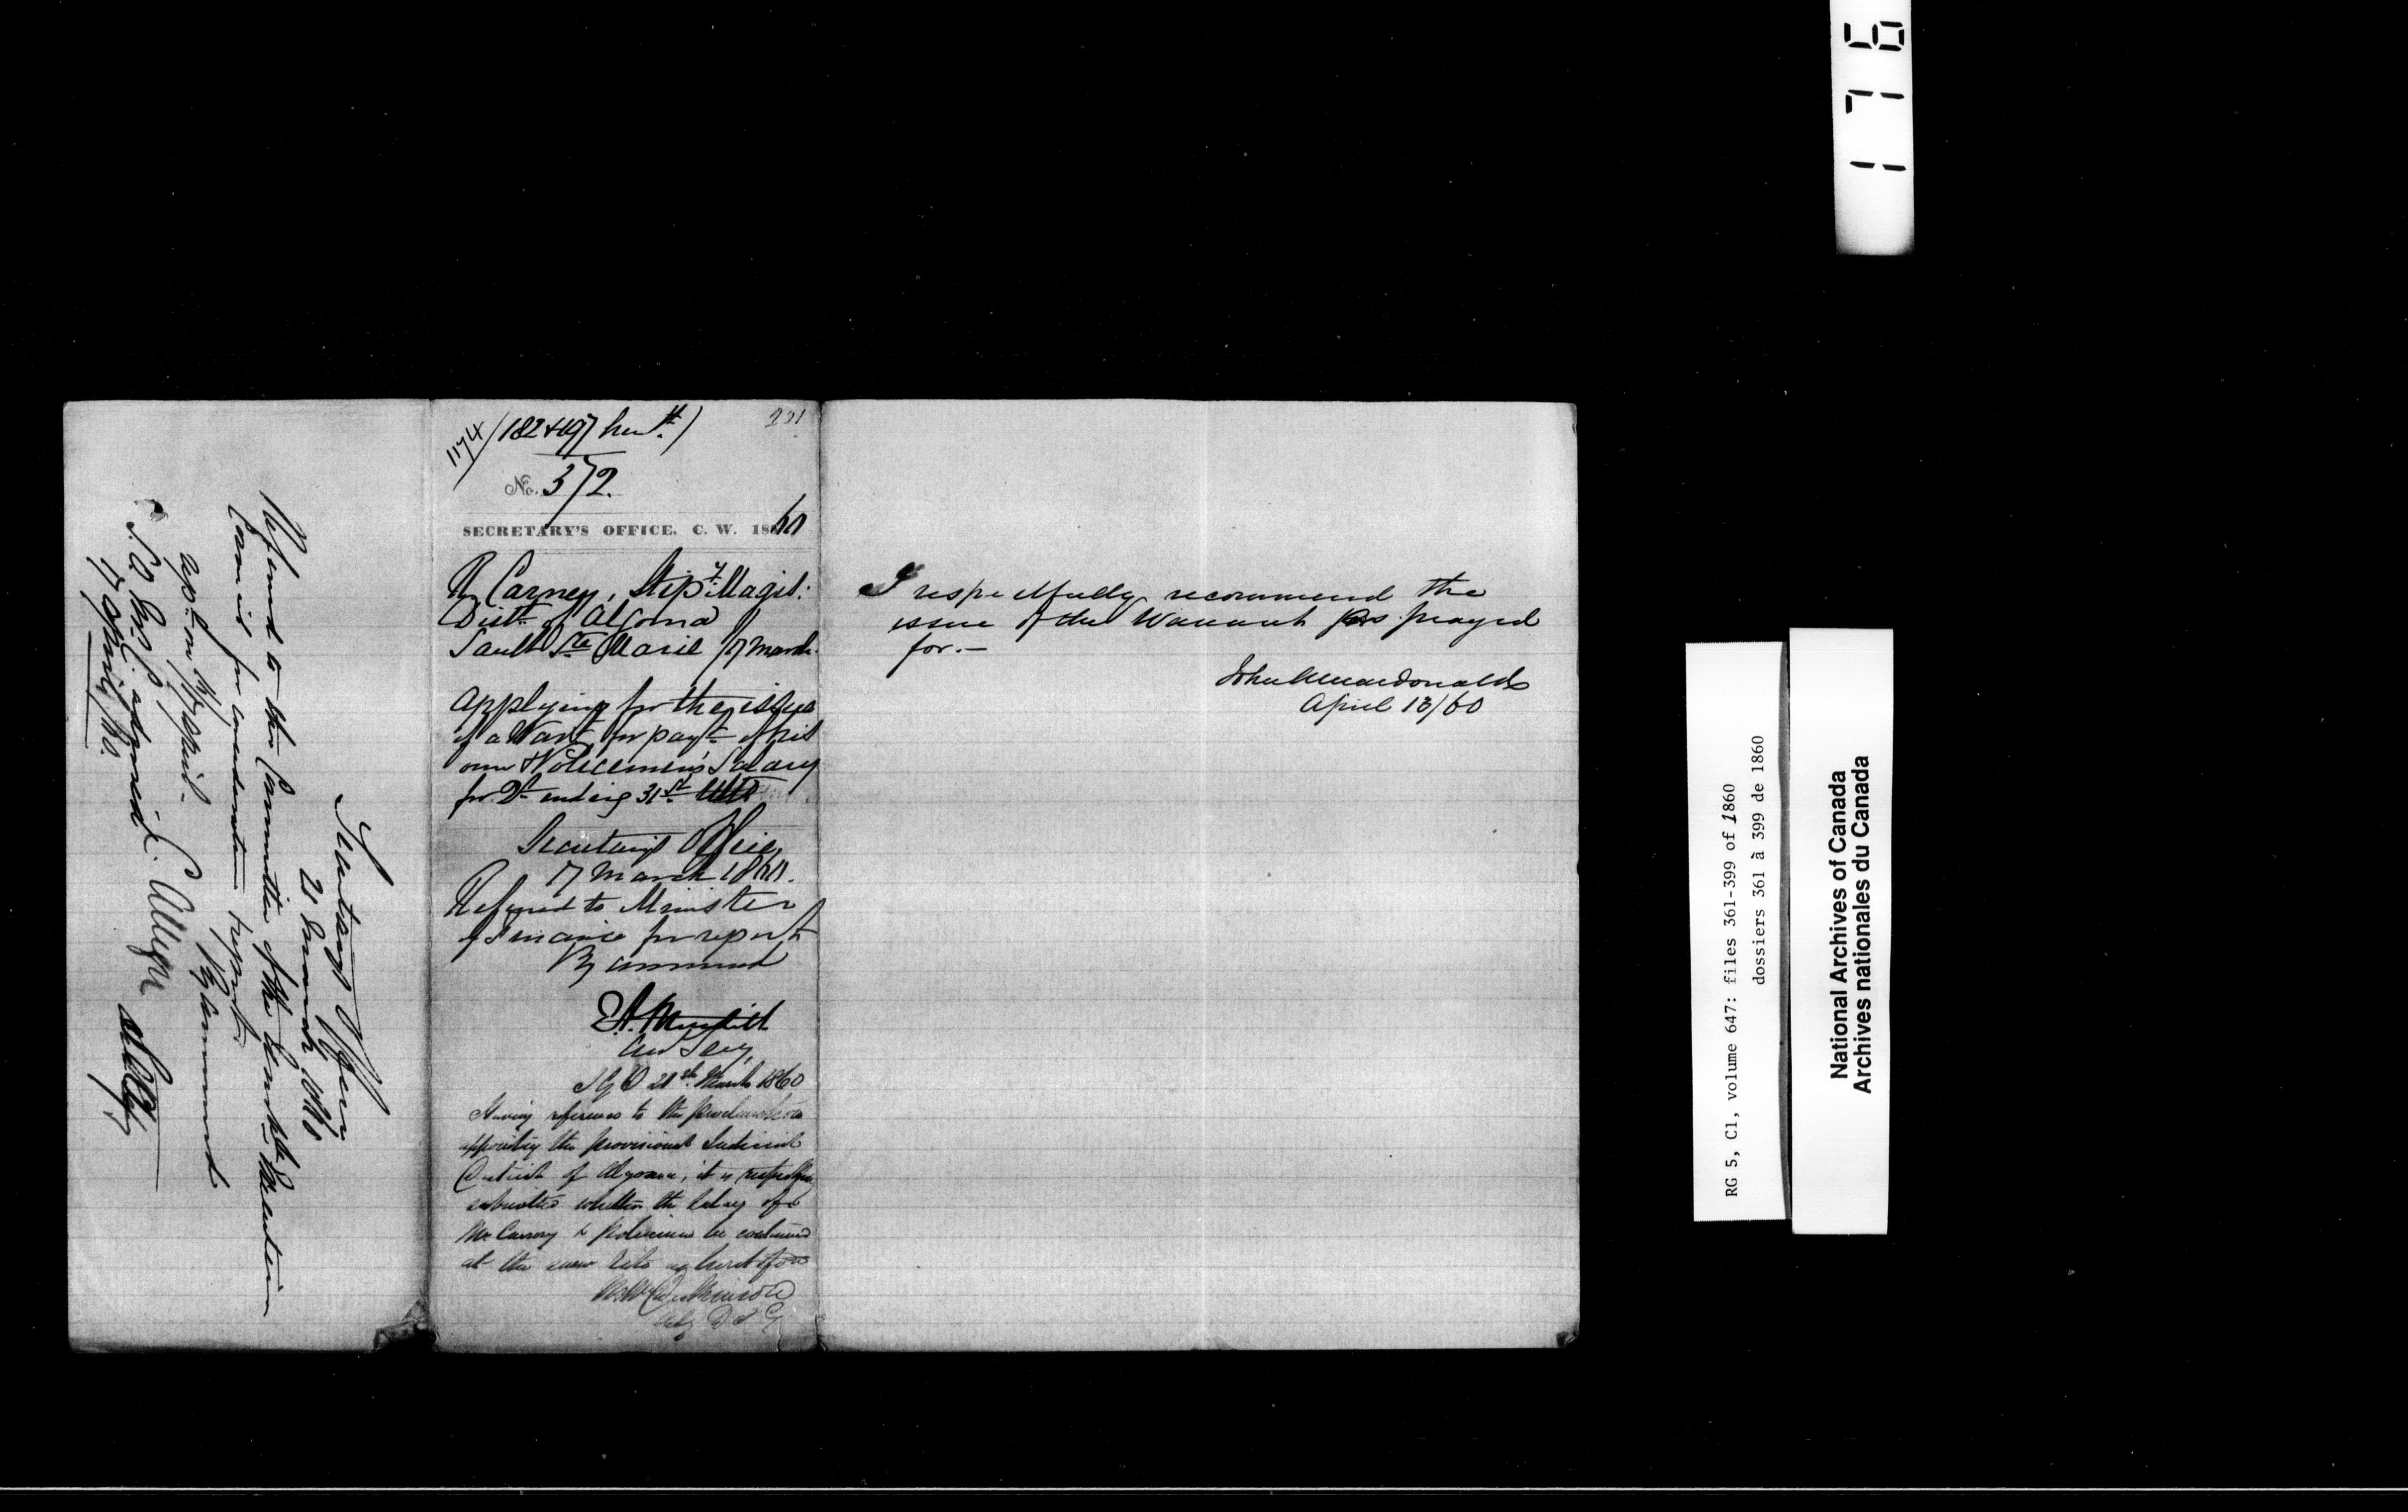 Secretary's Office
21 March 1860
Referred to the Committee of the Honble Executive
Council for consideration & report
By Command
Rept. on 17 April
17 April /60.
1174 / 182 & 197 hew th)
221
No. 372.
SECRETARY'S OFFICE, C. W. 1860
R Carney, Stipy. Magist:
Distt. of Algoma
Sault Ste Marie 17 March.
Applying for the issue
of a Wart. for payt. of his
own & Policemen's Salary
for Qr. ending 31st
Secretary's Office,
17 March 1860.
Referred to Minister
of Finance for report
By command
E.A. Meredith
Asst Secy,
I G O 21st March 1860
Having reference to the proclamation
appointing the provisional Judicial
District of Algoma, it is respectfully
submitted whether the Salary of
Mr Carney & policemen be continued
at the same rate as heretofore
Wm Dickinson
Actg D I G
I respectfully recommend the
issue of the Warrant as prayed
for.—
John A Macdonald
April 13/60
176
RG 5, C1, volume 647: files 361-399 of 1860
dossiers 361 à 399 de 1860
National Archives of Canada
Archives nationales du Canada